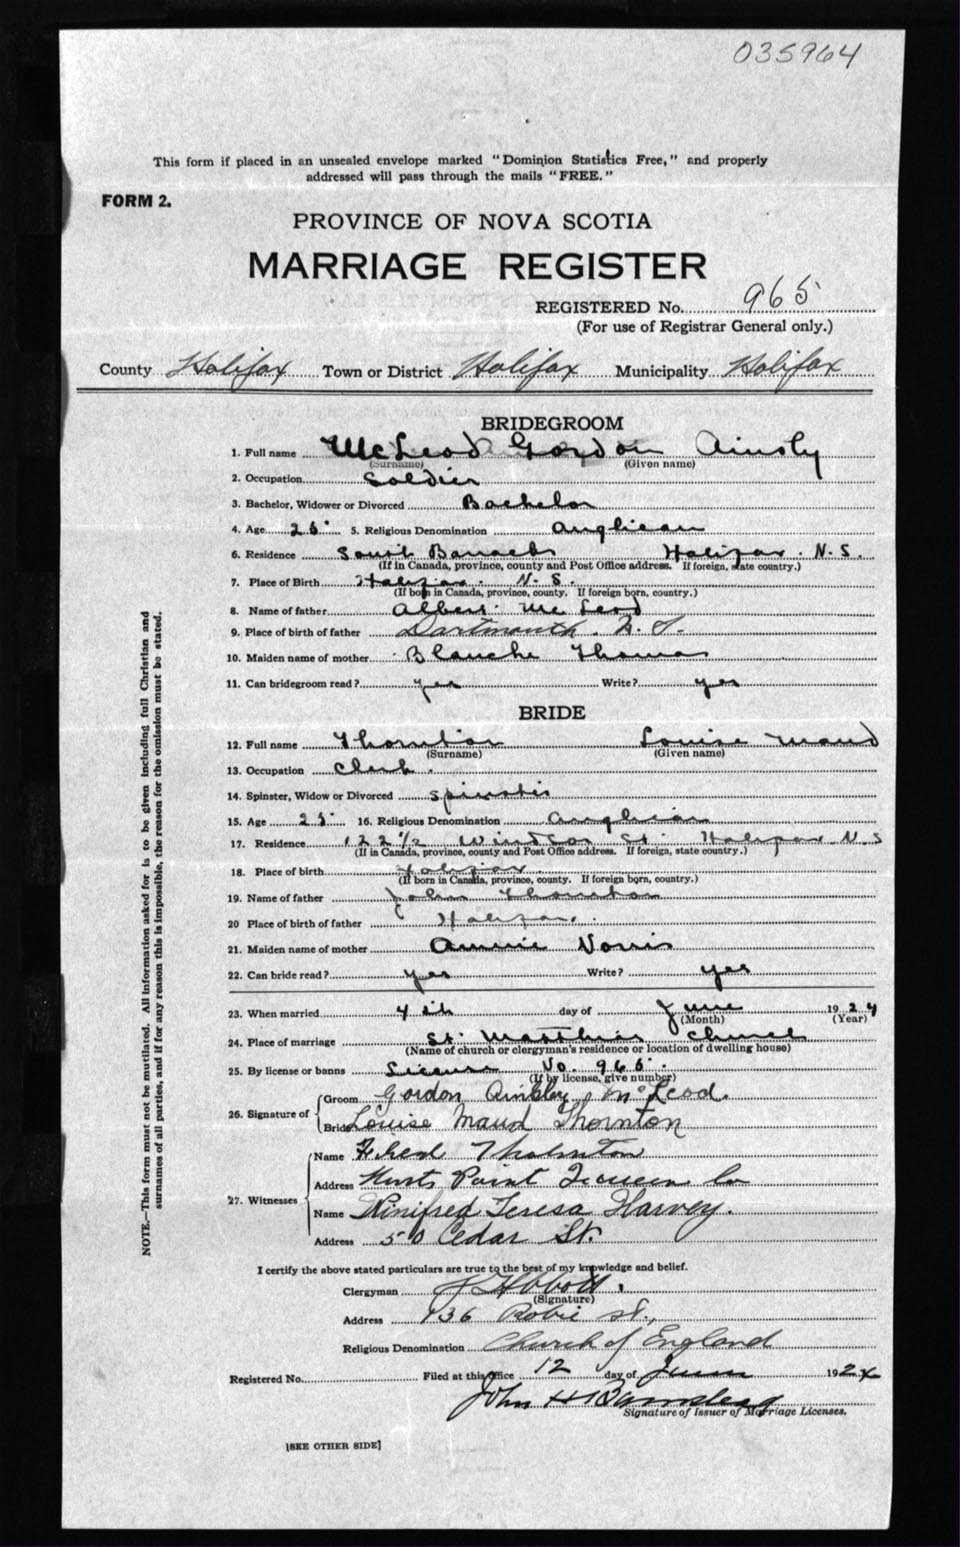 035964
This form if placed in an unsealed envelope marked "Dominion Statistics Free," and properly
addressed will pass through the mails "FREE."
FORM 2.
PROVINCE OF NOVA SCOTIA
MARRIAGE REGISTER
REGISTERED No. 965
(For use of Registrar General only.)
County Halifax Town or District Halifax Municipality Halifax
BRIDEGROOM
1. Full name McLeod Gordon Ainsly
(Surname) (Given name)
2. Occupation Soldier
3. Bachelor, Widower or Divorced Bachelor
4. Age 26 5. Religious Denomination Anglican
6. Residence South Barracks Halifax. N. S.
(If in Canada, province, county and Post Office address. If foreign, state country.)
7. Place of Birth Halifax. N. S.
(If born in Canada, province, county. If foreign born, country.)
8. Name of father Albert McLeod
9. Place of birth of father Dartmouth. N. S.
10. Maiden name of mother Blanche Thomas
11. Can bridegroom read? yes Write? yes
BRIDE
12. Full name Thornton Louise Maud
(Surname) (Given name)
13. Occupation Clerk.
14. Spinster, Widow or Divorced Spinster
15. Age 25 16. Religious Denomination Anglican
17. Residence 122 1/2 Windsor St. Halifax N. S
(If in Canada, province, county and Post Office address. If foreign, state country.)
18. Place of birth Halifax.
(If born in Canada, province, county. If foreign born, country.)
19. Name of father John Thornton
20 Place of birth of father Halifax.
21. Maiden name of mother Annie Norris
22. Can bride read? yes Write? yes
23. When married 4th day of June 1924
(Month) (Year)
24. Place of marriage St. Matthias Church
(Name of church or clergyman's residence or location of dwelling house)
25. By license or banns License No. 965.
(If by license, give number)
26. Signature of
Groom Gordon Ainsley McLeod.
Bride Louise Maud Thornton
27. Witnesses
Name Thornton
Address Hunts Point Queens Co
Name Winifred Teresa Harvey.
Address 50 Cedar St.
I certify the above stated particulars are true to the best of my knowledge and belief.
Clergyman Abbott.
(Signature)
Address 136 Robie St.,
Religious Denomination Church of England
Registered No. Filed at this office 12 day of June 1924
John H Barnstead
Signature of Issuer of Marriage Licenses.
[SEE OTHER SIDE]
NOTE.—This form must not be mutilated. All information asked for is to be given including full Christian and
surnames of all parties, and if for any reason this is impossible, the reason for the omission must be stated.